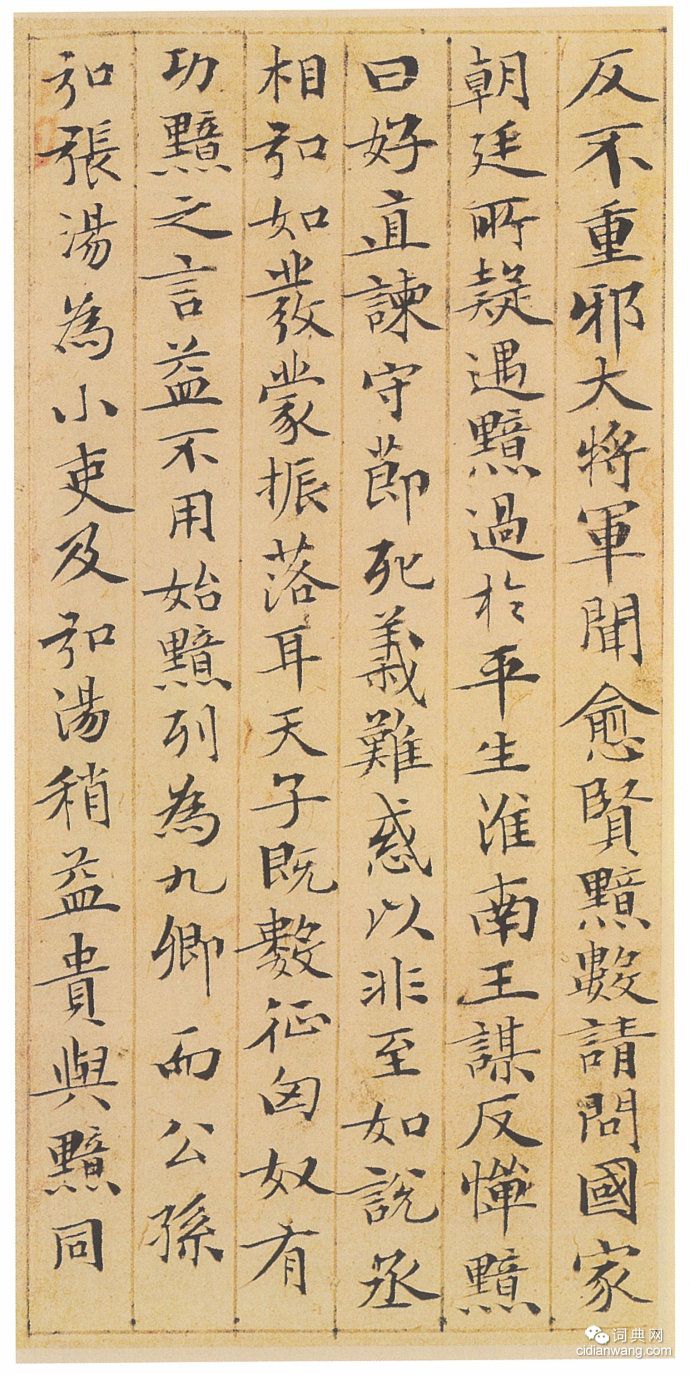 反不重邪大將軍聞愈賢黯數請問國家
朝廷所疑遇黯過於平生淮南王謀反憚黯
曰好直諫守節死義難惑以非至如說丞
相弘如發蒙振落耳天子既數征匈奴有
功黯之言益不用始黯列為九卿而公孫
弘張湯為小吏及弘湯稍益貴與黯同
词典网
cidianwang.com